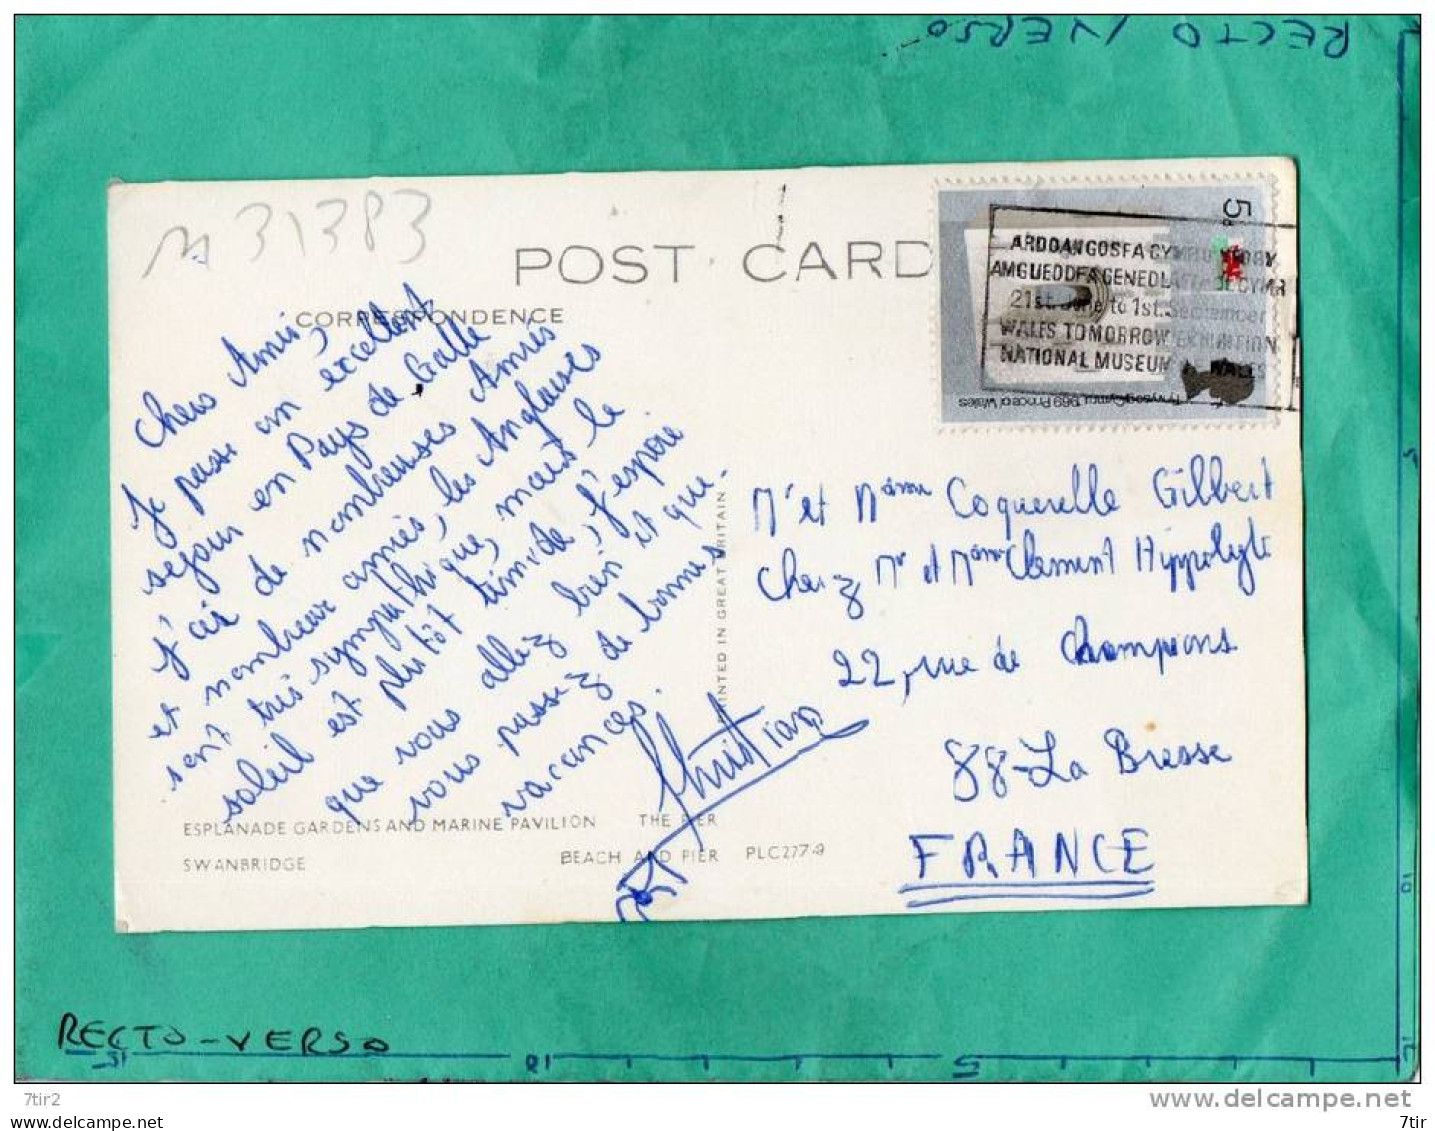 RECTO VERSO
M 31383
POST CARD
CORRESPONDENCE
5
ARDDANGOSFA CYMRU
AMGUEDDFA GENEDLAETHOL CYMRU
21st. June to 1st. September
WALES TOMORROW EXHIBITION
NATIONAL MUSEUM WALES
Tywysog Cymru 1969 Prince of Wales
Chers Amis,
Je passe un excellent
sejour en Pays de Galle
j'ai de nombreuses Amies
et nombreux amies, les Anglaises
sont très sympathique, mais le
soleil est plutôt timide, j'espère
que vous allez bien et que
vous passez de bonnes
vacances.
Christian
PRINTED IN GREAT BRITAIN.
Mr et Mme Coquerelle Gilbert
Chez Mr et Mme Clement Hippolyte
22, rue de Champions
88-La Bresse
FRANCE
ESPLANADE GARDENS AND MARINE PAVILION THE PIER
SWANBRIDGE BEACH AND PIER PLC277-9
RECTO-VERSO
15 10 5
5
10
7tir2
delcampe.net
7tir